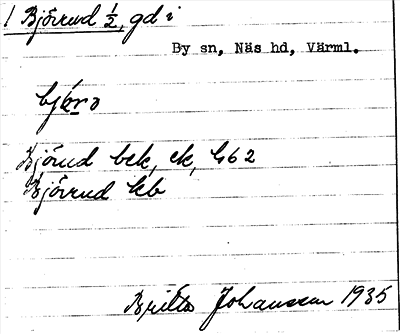 1 Björrud 1/2, gd i
By sn, Näs hd, Värml.
Björud bek, ek, G62
Björrud kb
Britta Johansson 1935